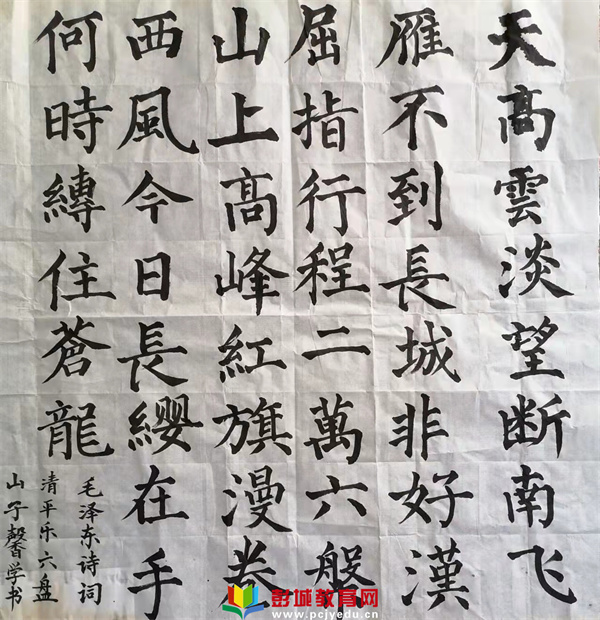 天高雲淡望断南飞
雁不到長城非好漢
屈指行程二萬六盤
山上高峰紅旗漫卷
西風今日長纓在手
何時縛住蒼龍
毛泽东诗词
清平乐六盘
山子馨学书
彭城教育网
www.pcjyedu.cn